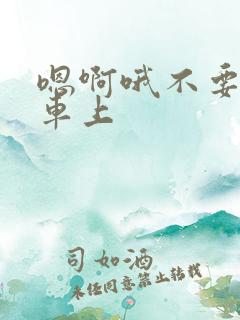 嗯啊哦不要
车上
司如酒
未经同意禁止转载